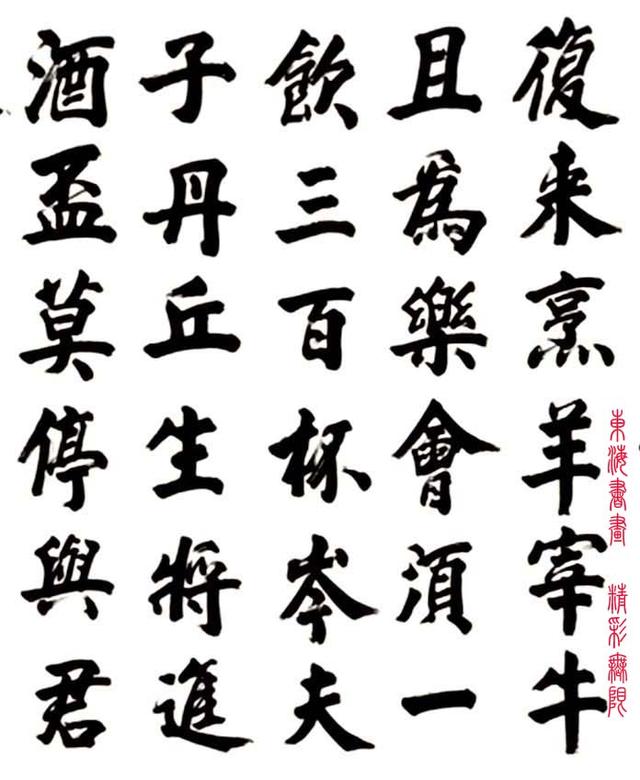 復来烹羊宰牛
且爲樂會須一
飲三百杯岑夫
子丹丘生將進
酒盃莫停與君
東海書畫 精彩無限